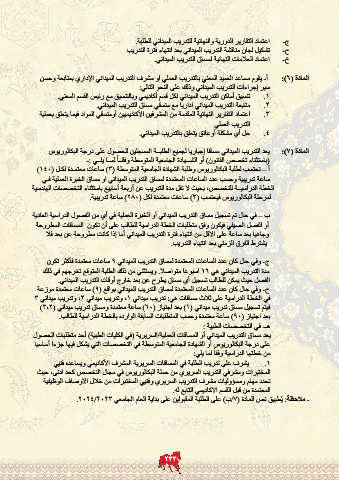 اعتماد التقارير الدورية والنهائية للتدريب الميداني للطلبة.
تشكيل لجان مناقشة التدريب الميداني بعد انتهاء فترة التدريب
اعتماد العلامات النهائية لمساق التدريب الميداني.
المادة (٦): أ- يقوم مساعد العميد المعني بالتدريب العملي او مشرف التدريب الميداني الإداري بمتابعة وحسن
سير إجراءات التدريب الميداني وذلك على النحو التالي:
١. تنسيق أماكن التدريب الميداني لكل قسم أكاديمي وبالتنسيق مع رئيس القسم المعني.
٢. متابعة التدريب الميداني اداريا مع منسقي مساق التدريب الميداني.
٣. اعتماد التقارير النهائية المقدمة من المشرفين الأكاديميين ومنسقي المواد فيما يتعلق بعملية
التدريب العملي.
٤. حل أي مشكلة أو عائق يتعلق بالتدريب الميداني.
المادة (٧): يعد التدريب الميداني مساقا إجباريا لجميع الطلبة المسجلين للحصول على درجة البكالوريوس
(باستثناء تخصص القانون) أو الشهادة الجامعية المتوسطة وفقاً لما يلي:
أ- تحتسب لطلبة البكالوريوس وطلبة الشهادة الجامعية المتوسطة (٣) ساعات معتمدة لكل (١٤٠)
ساعة تدريبية وحسب عدد الساعات المعتمدة لمساق التدريب الميداني او مساق الخبرة العملية في
الخطة الدراسية للتخصص، بحيث لا تقل مدة التدريب عن أربعة أسابيع باستثناء التخصصات الهندسية
لمرحلة البكالوريوس فيحتسب (٣) ساعات معتمدة لكل (٢٨٠) ساعة تدريبية.
ب- في حال تم تسجيل مساق التدريب الميداني أو الخبرة العملية في أي من الفصول الدراسية العادية
أو الفصل الصيفي فيكون وفق متطلبات الخطة الدراسية للطالب على أن تكون المساقات المطروحة
وجاهيا بعد ساعة على الأقل من انتهاء فترة التدريب الميداني أما إذا كانت مطروحة عن بعد فلا
يشترط الفارق الزمني بعد انتهاء التدريب.
ج- وفي حال كان عدد الساعات المعتمدة لمساق التدريب الميداني ٩ ساعات معتمدة فأكثر تكون
مدة التدريب الميداني هي ١٦ اسبوعا متواصلا. ويستثنى من ذلك الطلبة المتوقع تخرجهم في ذلك
الفصل حيث يمكن للطالب تسجيل أي مساق يطرح عن بعد خارج أوقات التدريب الميداني.
ح- وفي حال كان عدد الساعات المعتمدة لمساق التدريب الميداني بواقع (٩) ساعات معتمدة موزعة
في الخطة الدراسية على ثلاث مساقات هي: تدريب ميداني ١، وتدريب ميداني ٢، وتدريب ميداني ٣
فيتم تسجيل مساق تدريب ميداني (١) بعد اجتياز (٦٠) ساعة معتمدة ومساق تدريب ميداني (٢،٣)
بعد اجتياز (٩٠) ساعة معتمدة وحسب المتطلبات السابقة الواردة بالخطة الدراسية للطالب.
هـ- في التخصصات الطبية:
يعد مساق التدريب الميداني أو المساقات العملية/السريرية (في الكليات الطبية) أحد متطلبات الحصول
على درجة البكالوريوس أو الشهادة الجامعية المتوسطة في التخصصات التي يشكل فيها جزءا أساسيا
من خطتها الدراسية وفقا لما يلي:
١. يشرف على تدريب الطلبة في المساقات السريرية المشرف الأكاديمي ويساعده فنيي
المختبرات ومشرفي التدريب السريري من حملة البكالوريوس في مجال التخصص كحد أدنى، حيث
تحدد مهام ومسؤوليات مشرف التدريب السريري وفنيي المختبرات من خلال الأوصاف الوظيفية
المعتمدة من قبل القسم الأكاديمي التابع له.
- ملاحظة: يُطبق نص المادة (٧/ب) على الطلبة المقبولين على بداية العام الجامعي ٢٠٢٤/٢٠٢٣.